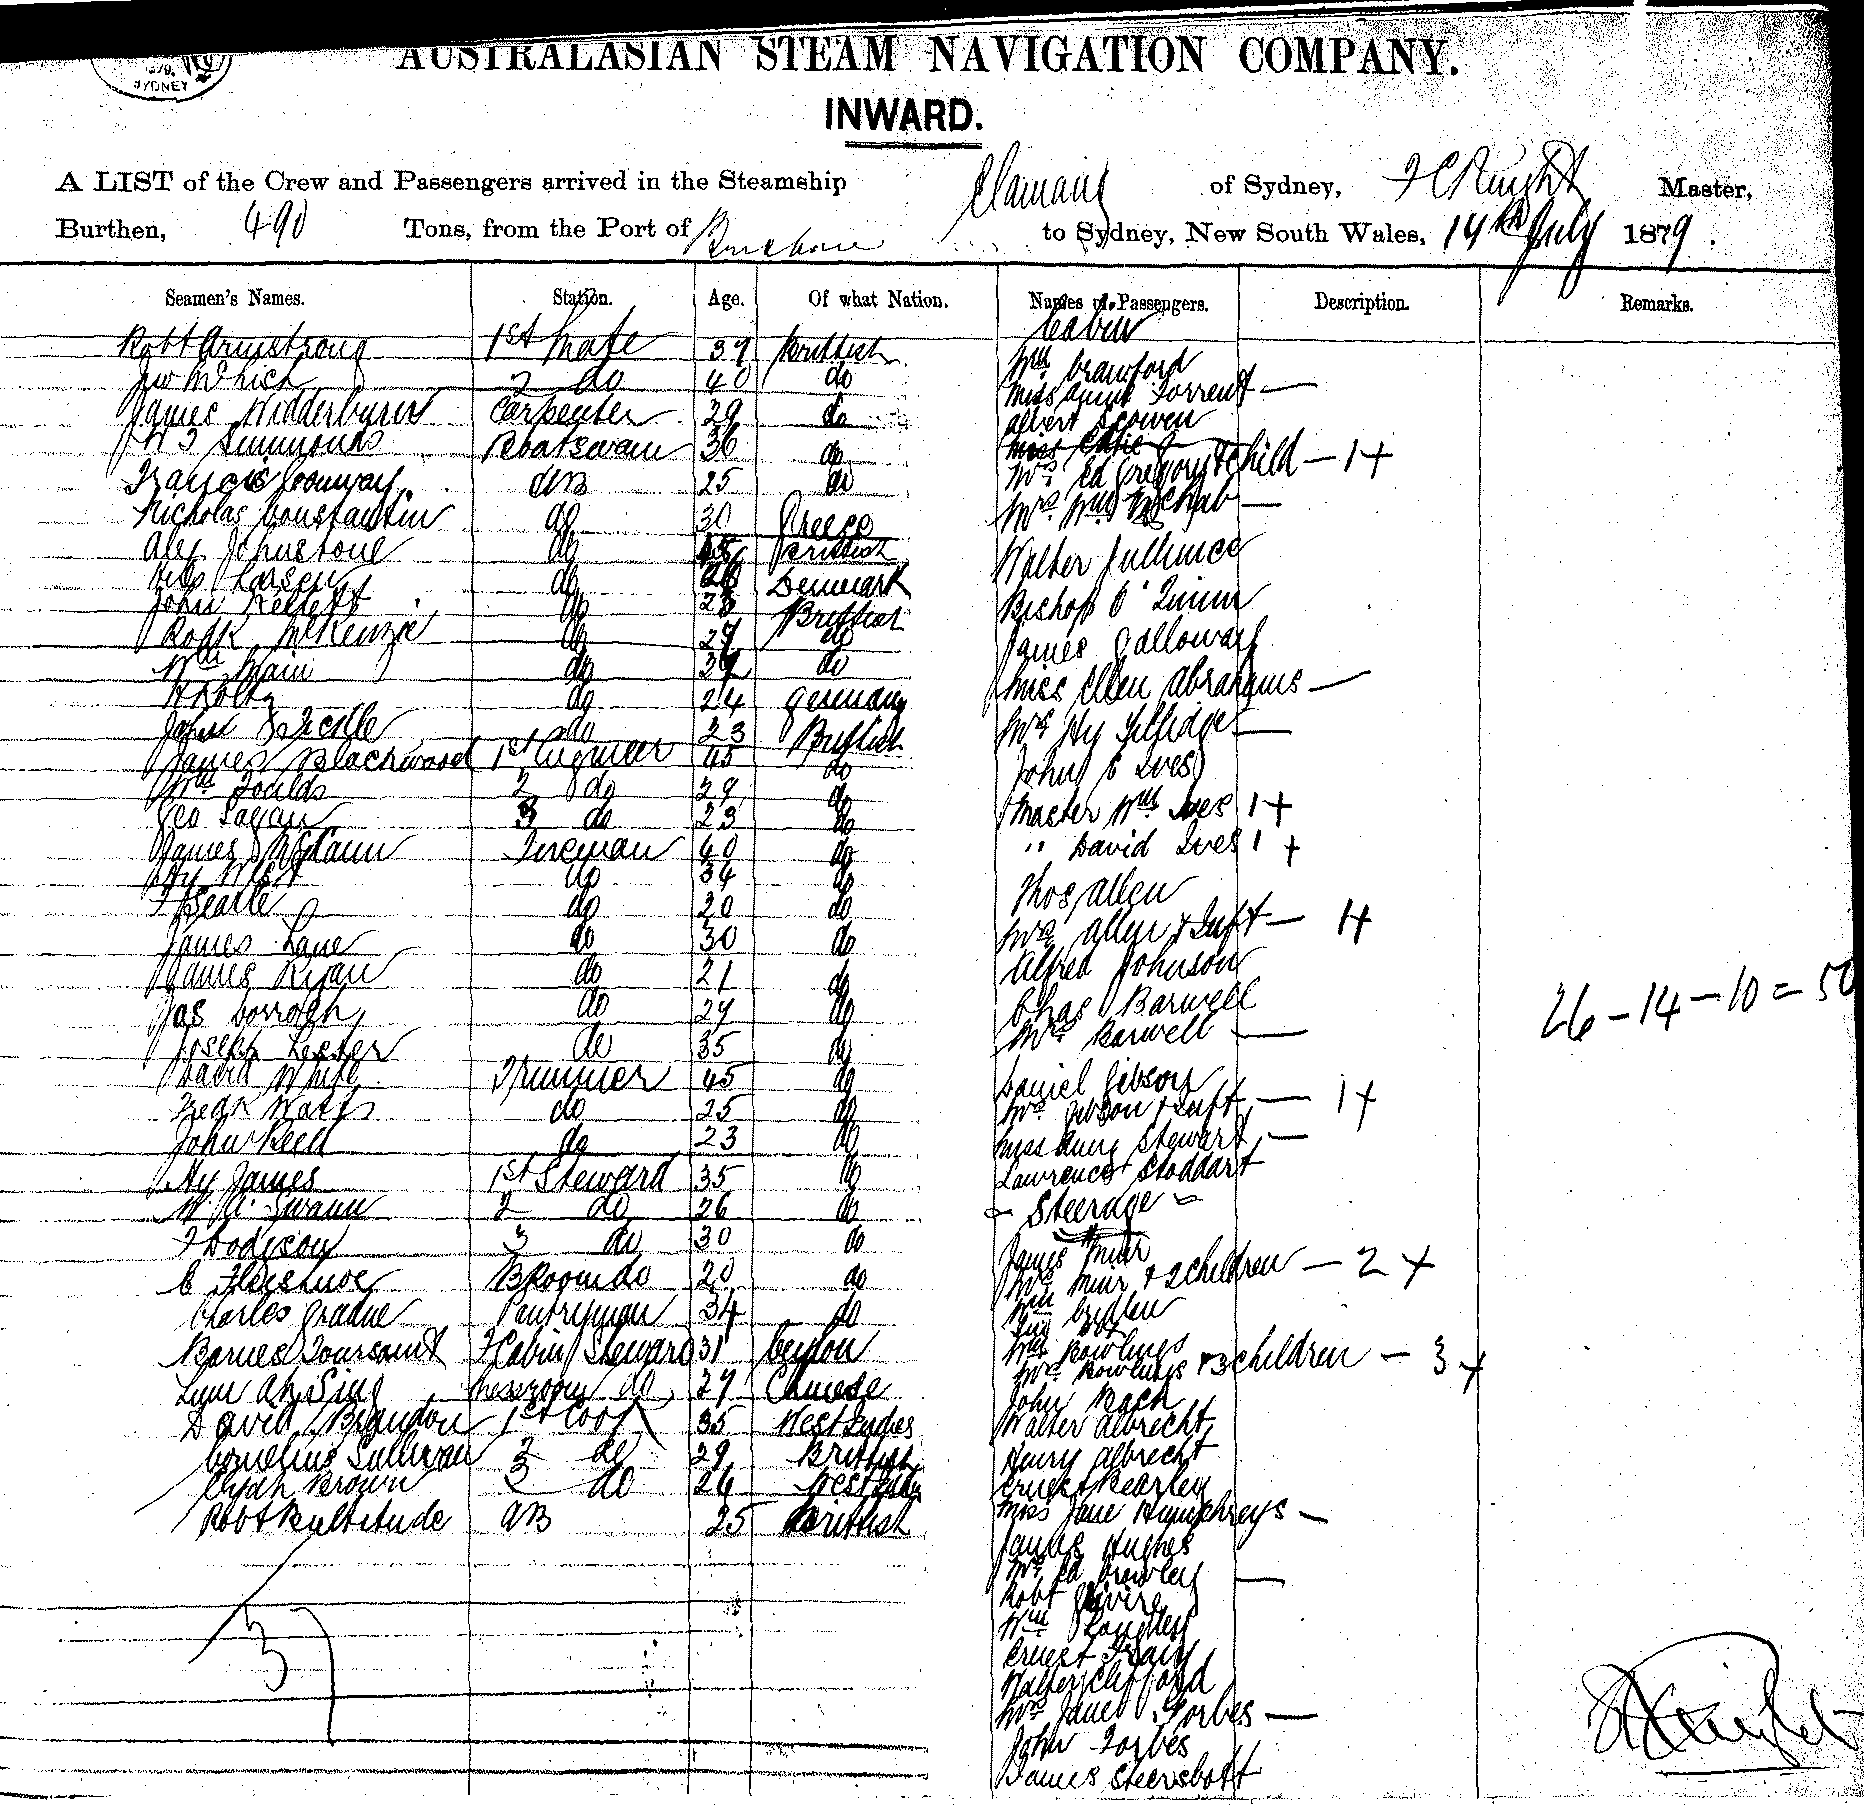 1879.
SYDNEY
AUSTRALASIAN STEAM NAVIGATION COMPANY.
INWARD.
A LIST of the Crew and Passengers arrived in the Steamship Elamang of Sydney, F C Knight Master,
Burthen, 490 Tons, from the Port of Brisbane to Sydney, New South Wales, 14th July 1879.
Seamen's Names. Station. Age. Of what Nation. Names of Passengers. Description. Remarks.
Cabin
Robt Armstrong 1st Mate 39 British
Mrs Crawford
2 do 40 do
Miss Torrent —
James Widderburn Carpenter 29 do
Albert Scowen
W J Simmonds Boatswain 36 do
Miss
Mrs Ed Gregory & Child — 1 +
Francis Conway AB 25 do
Mrs Wm —
Nicholas Constantin do 30 Greece
Alex Johnstone do 45 British
Walter Jullince
Nils Larsen do 28 Denmark
John Kellett do 28 British
Bishop O'Quinn
Rodk McKenzie do 27 do
James Galloway
Wm Main do 39 do
Miss Ellen Abrahams —
do 24 Germany
Mrs Hy —
John do 23 British
James Blackwood 1st Engineer 45 do
John E Ives
Wm Foulds 2 do 29 do
Master Wm Ives 1 +
Geo Fagan 3 do 23 do
" David Ives 1 +
James McCann Fireman 40 do
Hy West do 34 do
Thos Allen
F Searle do 20 do
Mrs Allen & Inft — 1 +
James Lane do 30 do
Alfred Johnson
James Ryan do 21 do
Chas Barwell
26 — 14 — 10 = 50
Jas Dorrogh do 27 do
Mrs Barwell —
Joseph Lester do 35 do
David White Trimmer 45 do
Daniel Gibson
Fredk Watts do 25 do
Mrs Gibson & Inft — 1 +
John Reed do 23 do
Miss Amy Stewart —
Hy James 1st Steward 35 do
Lawrence Stoddart
W A Swann 2 do 26 do
— Steerage —
F Dodgson 3 do 30 do
James Muir
C B Room do 20 do
Mrs Muir & 2 children — 2 +
Charles Graeme Pantryman 34 do
Wm
Barnes Toursaint F Cabin Steward 31 Ceylon
Wm Rowlings
Mrs Rowlings & 3 children — 3 +
Lum Ah Sing Messroom do 27 Chinese
John Bach
David Brandon 1st Cook 35 West Indies
Walter Albrecht
Cornelius Sullivan 2 do 29 British
Henry Albrecht
Elijah Brown 3 do 26 West Indies
Ernest Bearley
Robt Bultitude AB 25 British
Miss Jane Humphreys —
James Hughes
Mrs Ed Crowley —
Robt
Wm
Ernest
Walter Clifford
Mrs Janet Forbes —
John Forbes
James Steersbott
F C Knight